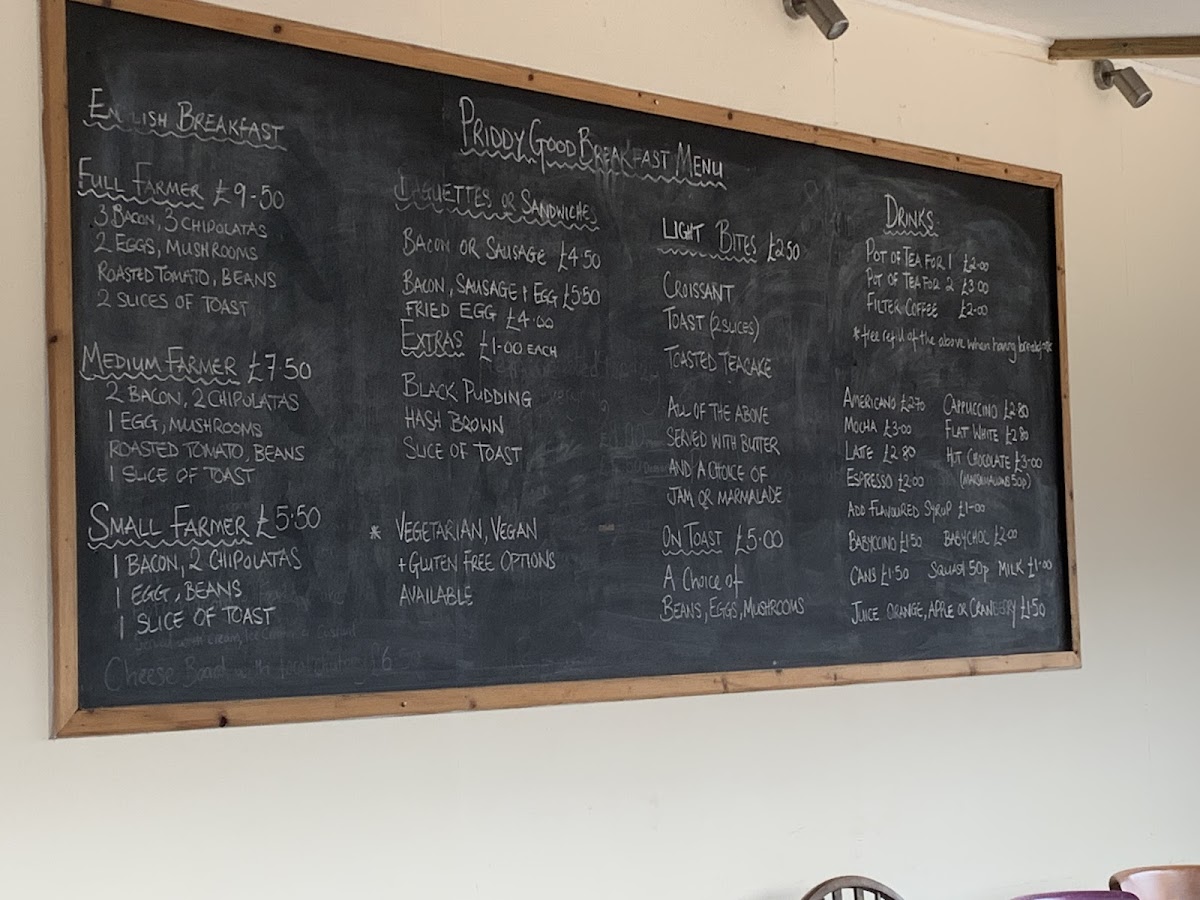 PRIDDY GOOD BREAKFAST MENU
ENGLISH BREAKFAST
FULL FARMER £9.50
3 BACON, 3 CHIPOLATAS
2 EGGS, MUSHROOMS
ROASTED TOMATO, BEANS
2 SLICES OF TOAST
MEDIUM FARMER £7.50
2 BACON, 2 CHIPOLATAS
1 EGG, MUSHROOMS
ROASTED TOMATO, BEANS
1 SLICE OF TOAST
SMALL FARMER £5.50
1 BACON, 2 CHIPOLATAS
1 EGG, BEANS
1 SLICE OF TOAST
Cheese Board with local £6.50
BAGUETTES OR SANDWICHES
BACON OR SAUSAGE £4.50
BACON, SAUSAGE + EGG £5.50
FRIED EGG £4.00
EXTRAS £1.00 EACH
BLACK PUDDING
HASH BROWN
SLICE OF TOAST
* VEGETARIAN, VEGAN
+ GLUTEN FREE OPTIONS
AVAILABLE
LIGHT BITES £2.50
CROISSANT
TOAST (2 SLICES)
TOASTED TEACAKE
ALL OF THE ABOVE
SERVED WITH BUTTER
AND A CHOICE OF
JAM OR MARMALADE
ON TOAST £5.00
A CHOICE OF
BEANS, EGGS, MUSHROOMS
DRINKS
POT OF TEA FOR 1 £2.00
POT OF TEA FOR 2 £3.00
FILTER COFFEE £2.00
*free refill of the above when having breakfast
AMERICANO £2.70 CAPPUCCINO £2.80
MOCHA £3.00 FLAT WHITE £2.80
LATTE £2.80 HOT CHOCOLATE £3.00
ESPRESSO £2.00 (MARSHMALLOWS 50p)
ADD FLAVOURED SYRUP £1.00
BABYCCINO £1.50 BABYCHOC £2.00
CANS £1.50 SQUASH 50p MILK £1.00
JUICE ORANGE, APPLE OR CRANBERRY £1.50